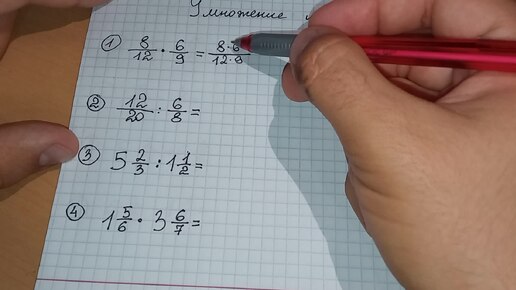 Умножение
① 8/12 · 6/9 = 8·6/12·9
② 12/20 : 6/8 =
③ 5 2/3 : 1 1/2 =
④ 1 5/6 · 3 6/7 =